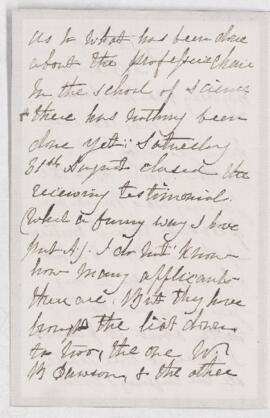 as to what has been done
about the professor chair
In the school of science
& there has nothing been
done yet: Saturday
31st August closed the
receiving testimonial.
(What a funny way I have
put it). I do not know
how many applicants
there are. But they have
brought the list down
to two, the one W.
B Dawson, & the other